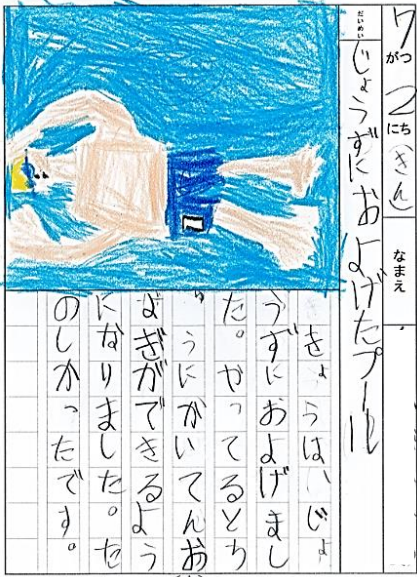 7がつ2にち(きん)
なまえ
だいめい
じょうずにおよげたプール
きょうは、じょ
うずにおよげまし
た。やってるとち
ゅうにかいてんお
よぎができるよう
になりました。た
のしかったです。